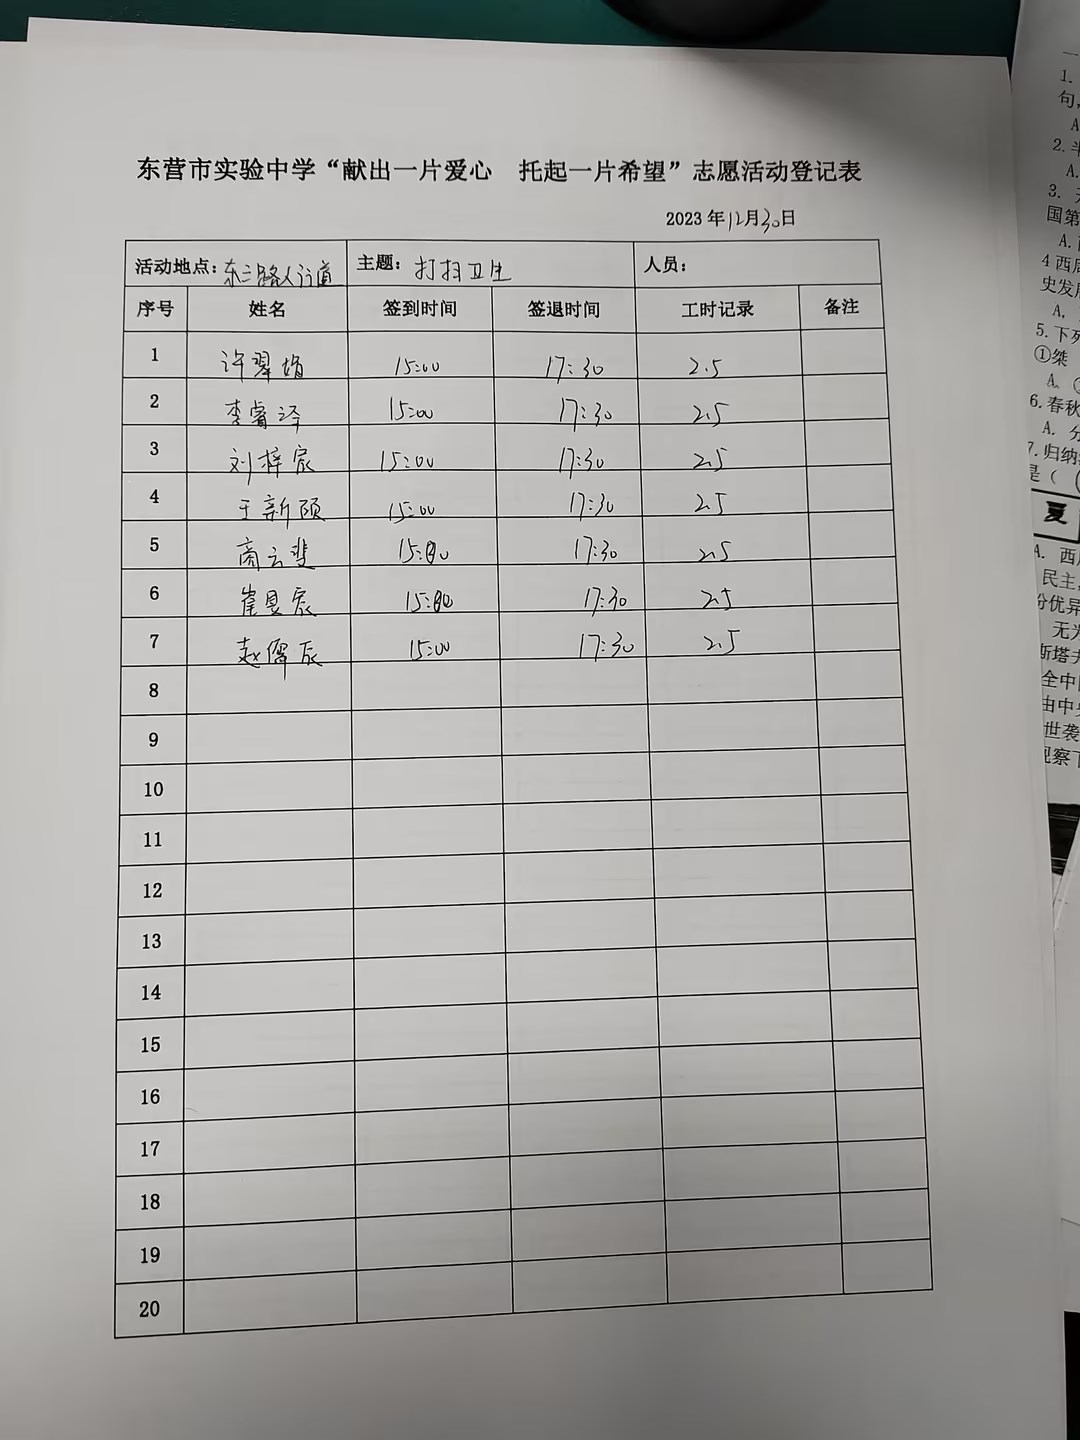 东营市实验中学“献出一片爱心 托起一片希望”志愿活动登记表
2023年12月30日
活动地点：东三路人行道 主题：打扫卫生 人员：
序号 姓名 签到时间 签退时间 工时记录 备注
1 许翠娟 15:00 17:30 2.5
2 李睿泽 15:00 17:30 2.5
3 刘梓宸 15:00 17:30 2.5
4 王新颐 15:00 17:30 2.5
5 商云斐 15:00 17:30 2.5
6 崔昱宸 15:00 17:30 2.5
7 赵儒辰 15:00 17:30 2.5
8
9
10
11
12
13
14
15
16
17
18
19
20
1.
句,
A
2.
A.
3.
国第
A.
4 西周
史发展
A.
5.下列
①桀
A.
6.春秋
A. 分
7.归纳
是（
夏
A. 西周
民主,
分优异
无为
斯塔夫
全中国
由中央
世袭
观察下